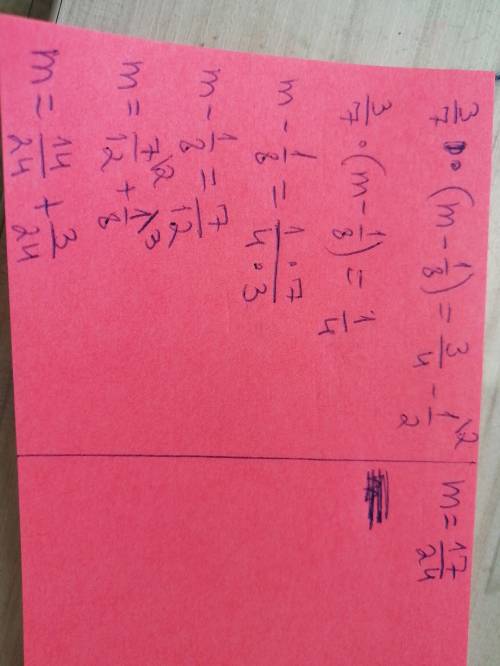 3/7 · (m - 1/8) = 3/4 - 1\2/2
3/7 · (m - 1/8) = 1/4
m - 1/8 = 1·7/4·3
m - 1/8 = 7/12
m = 7\2/12 + 1\3/8
m = 14/24 + 3/24
m = 17/24